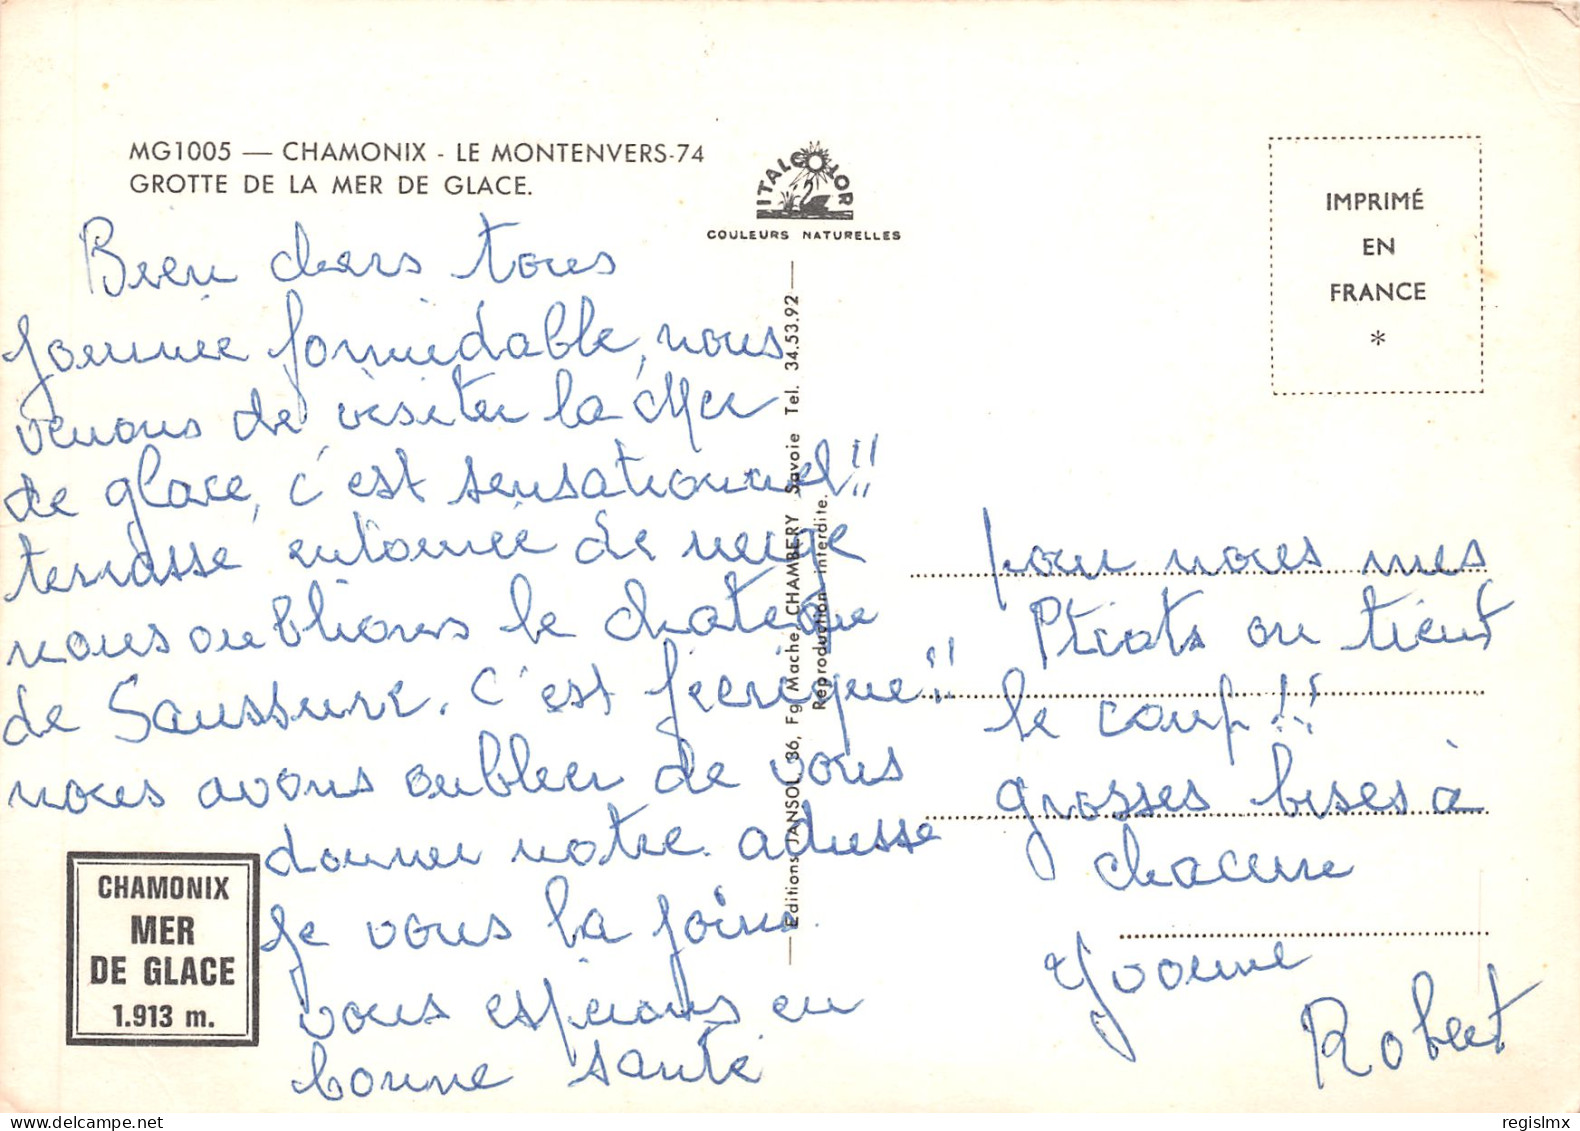 MG1005 — CHAMONIX - LE MONTENVERS-74
GROTTE DE LA MER DE GLACE.
ITALCOLOR
COULEURS NATURELLES
IMPRIMÉ
EN
FRANCE
*
Bien chers tous
Journée formidable, nous
venons de visiter la Mer
de glace, c'est sensationnel!!
terrasse entourée de neige
nous oublions le
de Saussure. C'est féerique!!
nous avons oublier de vous
donner notre adresse
Je vous la joins.
vous espérons en
bonne santé
pour nous mes
Ptiots on tient
le coup!!
grosses bises à
chacune
Yvonne
Robert
Editions JANSOL, 86, Fg Mache, CHAMBERY Savoie Tel. 34.53.92
Reproduction interdite.
CHAMONIX
MER
DE GLACE
1.913 m.
regislmx